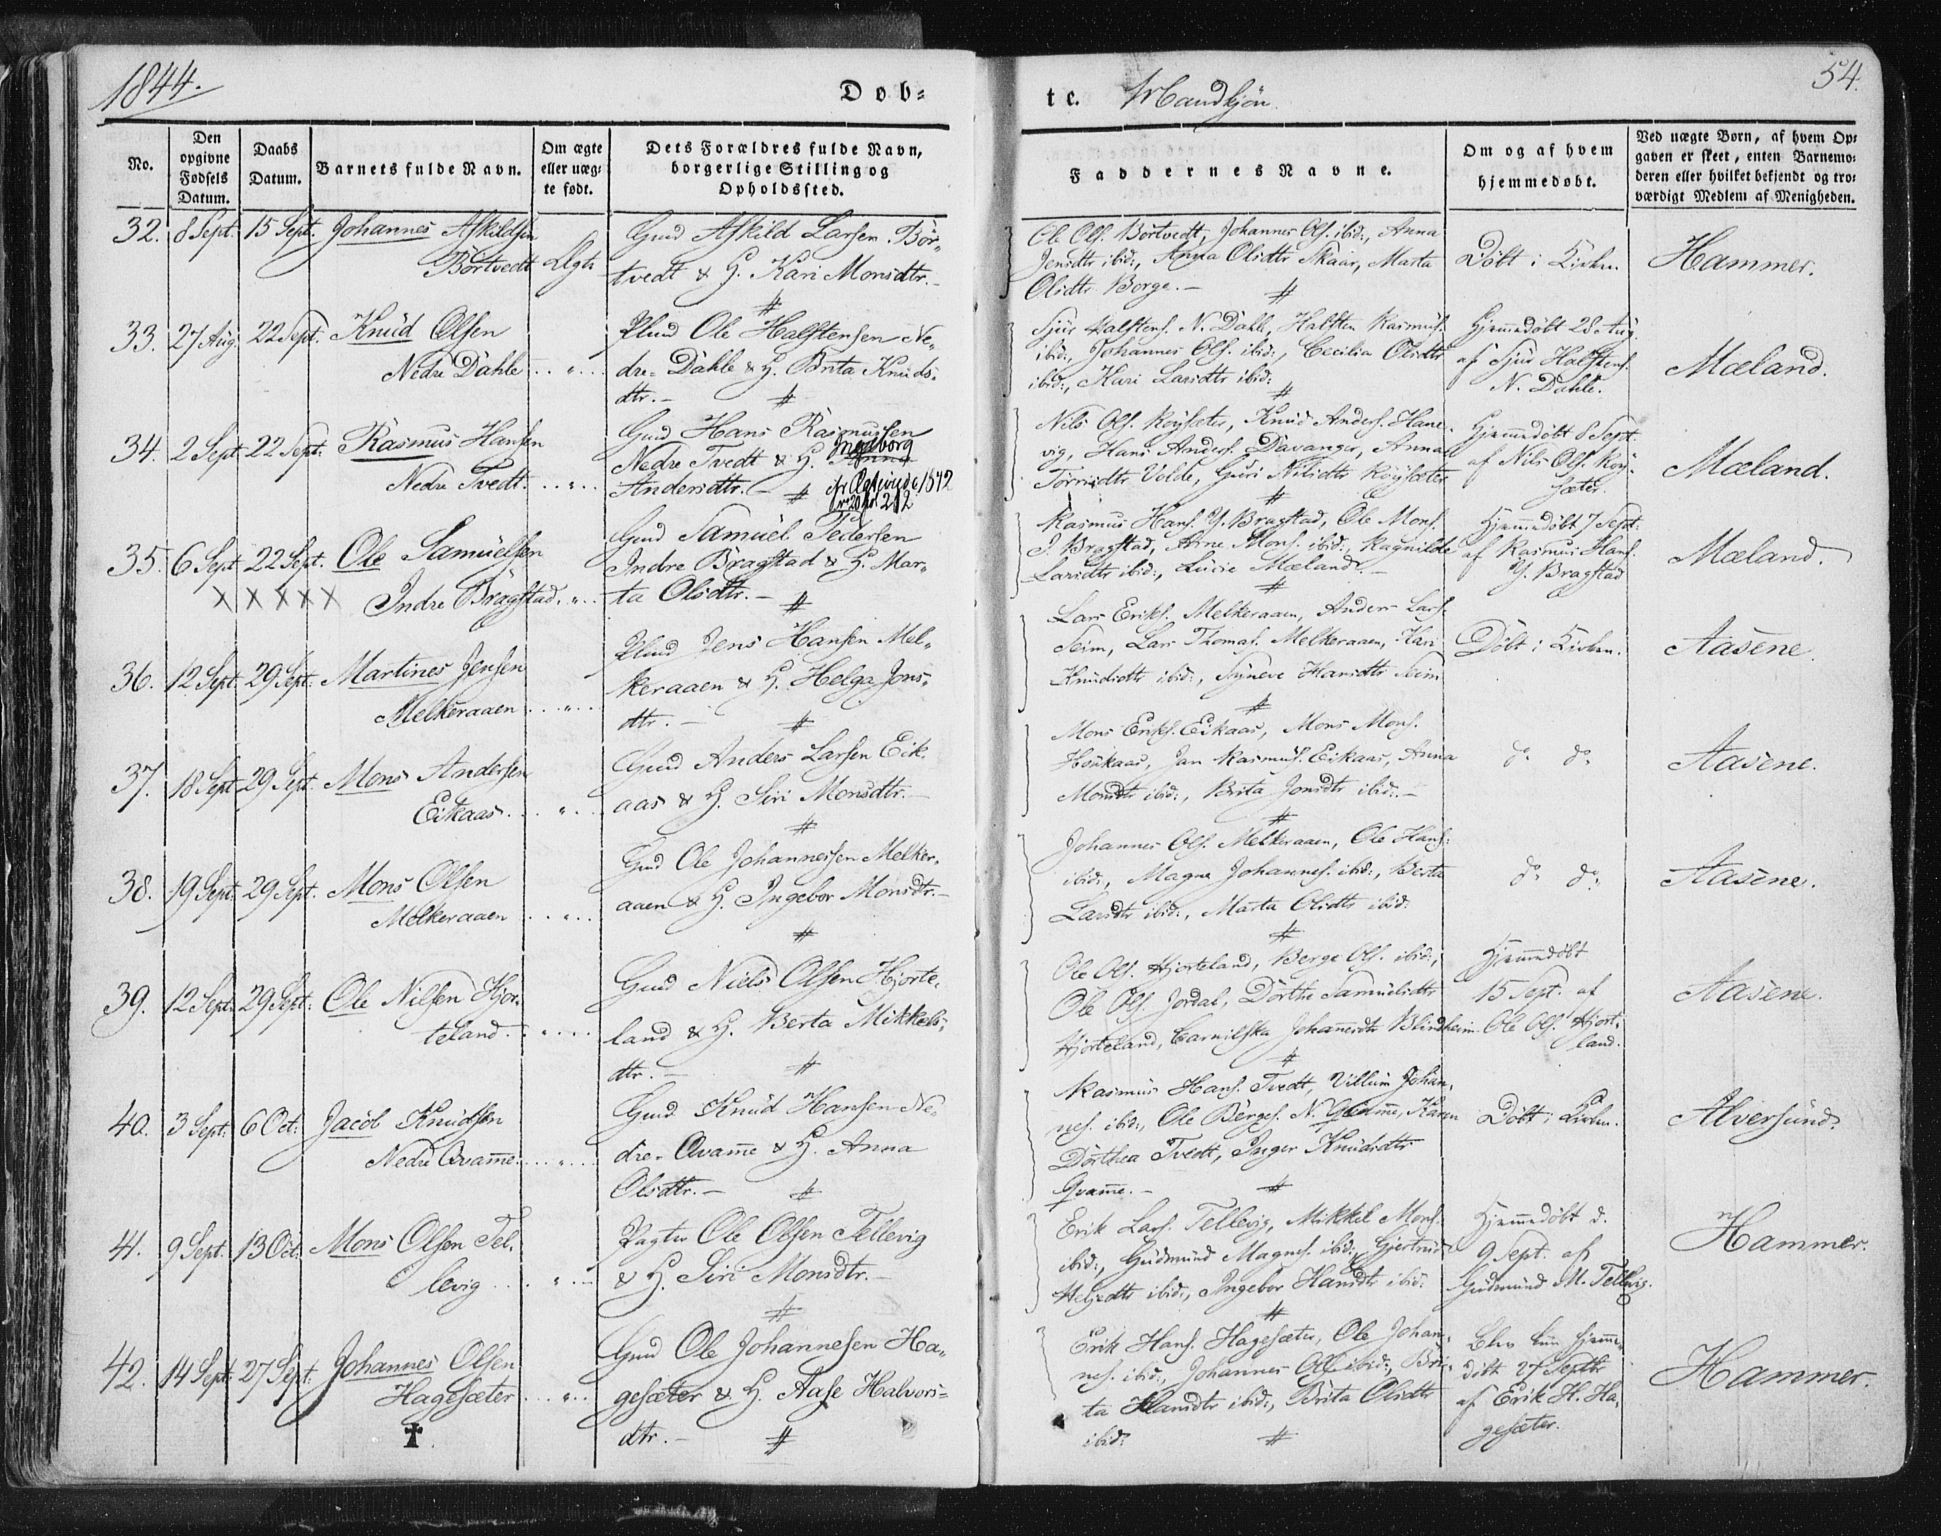 1844.
Dob=
te. Mandkjön.
54.
No.
Den opgivne Fødsels Datum.
Daabs Datum.
Barnets fulde Navn.
Om ægte eller uæg= te født.
Dets Forældres fulde Navn, borgerlige Stilling og Opholdssted.
Faddernes Navne.
Om og af hvem hjemmedøbt.
Ved uægte Børn, af hvem Op= gaven er skeet, enten Barnemo= deren eller hvilket bekjendt og tro= værdigt Medlem af Menigheden.
32. 8 Sept. 15 Sept. Johannes Askildsen
Börtvedt Ægte
Gmd Askild Larsen Bör=
tvedt & H. Kari Monsdtr. -
Ole Ols. Börtvedt, Johannes Ols. ibid:, Anna
Jensdtr ibid:, Anna Olsdtr Skaar, Marta
Olsdtr Borge. -
Döbt i Kirken.
Hammer.
33. 27 Aug. 22 Sept. Knud Olsen
Nedre Dahle
Plmd Ole Halstensen Ne=
dre-Dahle & H. Brita Knuds=
dtr. -
Sjur Halstens. N. Dahle, Halsten Rasmus.
ibid:, Johannes Ols. ibid:, Cecilia Olsdtr
ibid:, Kari Larsdtr ibid:
Hjemmedöbt 28. Aug.
af Sjur Halstens.
N. Dahle.
Mæland.
34. 2 Sept. 22 Sept. Rasmus Hansen
Nedre Tvedt.
Gmd Hans Rasmussen
Nedre Tvedt & H. Anna Ingeborg
Andersdtr. -
Nils Ols. Röysæter, Knud Anders. Hane=
vig, Hans Anders. Davanger, Anna
Torrisdtr Volde, Guri Nilsdtr Röysæter
Hjemmedöbt 8 Sept.
af Nils Ols. Röy=
sæter.
Mæland.
35. 6 Sept. 22 Sept. Ole Samuelsen
x x x x x Indre Bragstad
Gmd Samuel Pedersen
Indre Bragstad & H. Mar=
ta Olsdtr. -
Rasmus Hans. Y. Bragstad, Ole Mons.
I. Bragstad, Arne Mons. ibid:, Ragnilde
Larsdtr ibid:, Lucie Mæland. -
Hjemmedöbt 7 Sept.
af Rasmus Hans.
Y. Bragstad
Mæland.
36. 12 Sept. 29 Sept. Martines Jensen
Melkeraaen
Plmd Jens Hansen Mel=
keraaen & H. Helga Jons=
dtr. -
Lars Eriks. Melkeraaen, Anders Lars.
Seim, Lars Thomas. Melkeraaen, Kari
Knudsdtr ibid:, Syneve Hansdtr Seim
Döbt i Kirken.
Aasene.
37. 18 Sept. 29 Sept. Mons Andersen
Eikaas.
Gmd Anders Larsen Eik=
aas & H. Siri Monsdtr. -
Mons Eriks. Eikaas, Mons Mons.
Houkaas, Jan Rasmus. Eikaas, Anna
Monsdtr ibid:, Brita Jonsdtr ibid:. -
do do
Aasene.
38. 19 Sept. 29 Sept. Mons Olsen
Melkeraaen
Gmd Ole Johannesen Melker=
aaen & H. Ingebor Monsdtr. -
Johannes Ols. Melkeraaen, Ole Hans.
ibid:, Magne Johannes. ibid:, Berta
Larsdtr ibid:, Marta Olsdtr ibid:
do do
Aasene.
39. 12 Sept. 29 Sept. Ole Nilsen Hjor=
teland.
Gmd Niels Olsen Hjorte=
land & H. Berta Mikkels=
dtr. -
Ole Ols. Hjorteland, Berge Ols. ibid:,
Ole Ols. Jordal, Dorthe Samuelsdtr
Hjorteland, Johannesdtr Blindheim.
Hjemmedöbt
15 Sept. af
Ole Ols. Hjort=
land.
Aasene.
40. 3 Sept. 6 Oct: Jacob Knudsen
Nedre Qvamme.
Gmd Knud Hansen Ne=
dre-Qvamme & H. Anna
Olsdtr. -
Rasmus Hans. Tvedt, Villum Johan=
nes. ibid:, Ole Börges. N. Qvamme, Karen
Dorthea Tvedt, Inger Knudsdtr
Qvamme. -
Döbt i Kirken.
Alversund.
41. 9 Sept. 13 Oct: Mons Olsen Tel=
levig
Pagter Ole Olsen Tellevig
& H. Siri Monsdtr. -
Erik Lars. Tellevig, Mikkel Mons.
ibid:, Gudmund Magnes. ibid:, Gjertrud
Heljedtr ibid:, Ingebor Hansdtr ibid:
Hjemmedöbt d.
9 Sept. af
Gudmund M. Tellevig.
Hammer.
42. 14 Sept. 27 Sept. Johannes Olsen
Hagesæter
✝
Gmd Ole Johannesen Ha=
gesæter & H. Aase Halvors=
dtr. -
Erik Hans. Hagesæter, Ole Johan=
nes. ibid:, Johannes Ols. ibid:, Bri=
ta Hansdtr ibid:, Brita Olsdtr
ibid:
Blev kun hjemme=
döbt 27 Septbr
af Erik H. Ha=
gesæter.
Hammer.